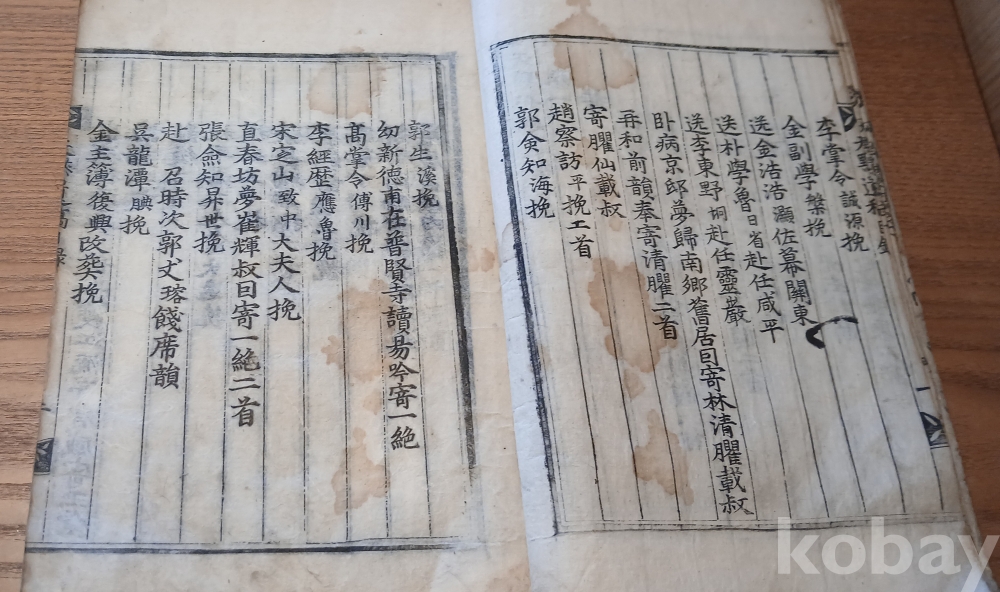 李掌令誠源挽
金副學槃挽
送金浩浩灝佐幕關東
送朴學魯日省赴任咸平
送李東野垌赴任靈巖
臥病京邸夢歸南鄉舊居囙寄林清臞載叔
再和前韻奉寄清臞二首
寄臞仙載叔
趙察訪平挽二首
郭僉知海挽
郭生溪挽
幼新德甫在普賢寺讀易吟寄一絶
高掌令傅川挽
李經歷應魯挽
宋定山致中大夫人挽
直春坊夢崔輝叔囙寄一絶二首
張僉知昇世挽
赴召時次郭丈瑢餞席韻
吳龍潭腆挽
金主簿後興改葬挽
kobay